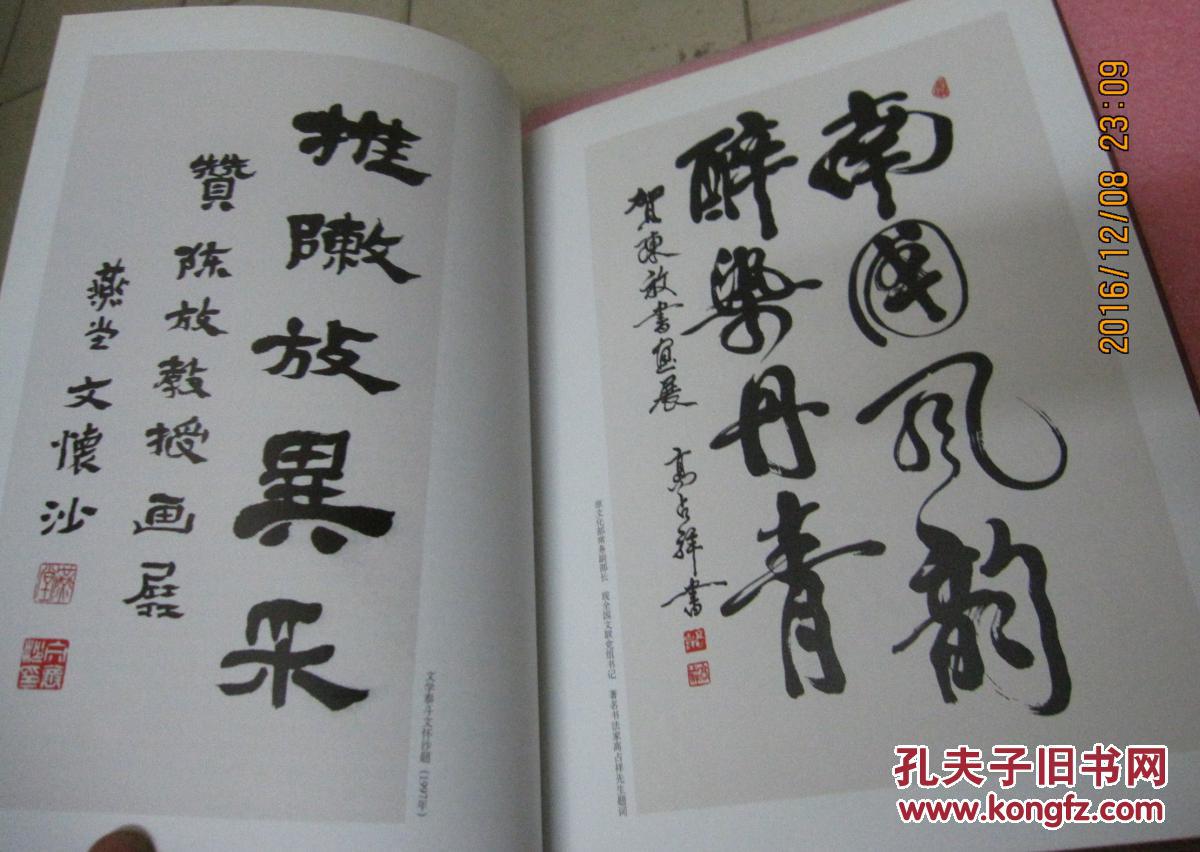 推敶放異采
贊陈放教授画展
燕堂文懷沙
燕堂
文学泰斗文怀沙题（1997年）
南國风韵
醉染丹青
贺陳放書画展
高占祥書
原文化部常务副部长 现全国文联党组书记 著名书法家高占祥先生题词
2016/12/08 23:09
孔夫子旧书网
www.kongfz.com